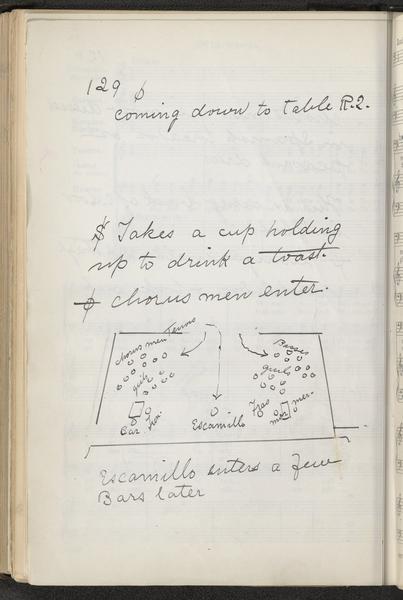 129 ϕ
coming down to table R.2.
$ Takes a cup holding
up to drink a toast.
ϕ chorus men enter.
chorus men Tenors
Basses
girls
girls
Car
Escamillo
Fras
mer.
mor
Escamillo enters a few
Bars later